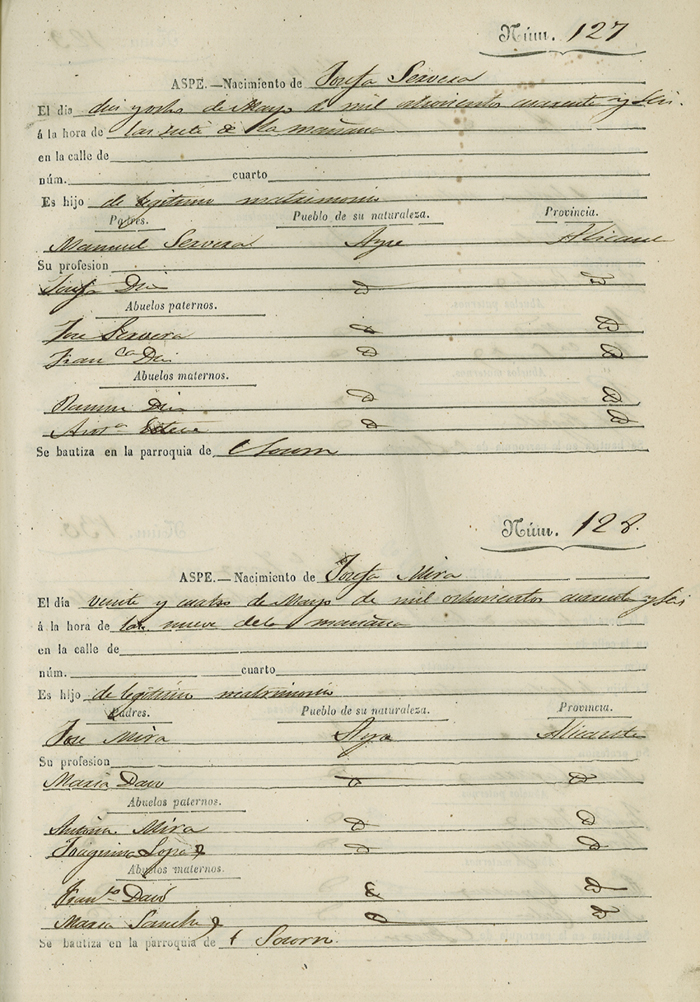 Núm. 127
ASPE.—Nacimiento de Josefa Servera
El dia diez y ocho de Mayo de mil ochocientos cuarenta y seis.
á la hora de las siete de la mañana
en la calle de
núm. cuarto
Es hijo de legitimo matrimonio
Padres. Pueblo de su naturaleza. Provincia.
Manuel Servera Aspe Alicante
Su profesion
Josefa D
Abuelos paternos.
Jose Servera
Fran.ca
Abuelos maternos.
Ramon
Ant.a
Se bautiza en la parroquia de
Núm. 128.
ASPE.—Nacimiento de Josefa Mira
El dia veinte y cuatro de Mayo de mil ochocientos cuarenta y seis
á la hora de las nueve dela mañana
en la calle de
núm. cuarto
Es hijo de legitimo matrimonio
Padres. Pueblo de su naturaleza. Provincia.
Jose Mira Aspe Alicante
Su profesion
Maria
Abuelos paternos.
Antonio Mira
Joaquina Lopez
Abuelos maternos.
Fran.co
Maria Sanchez
Se bautiza en la parroquia de